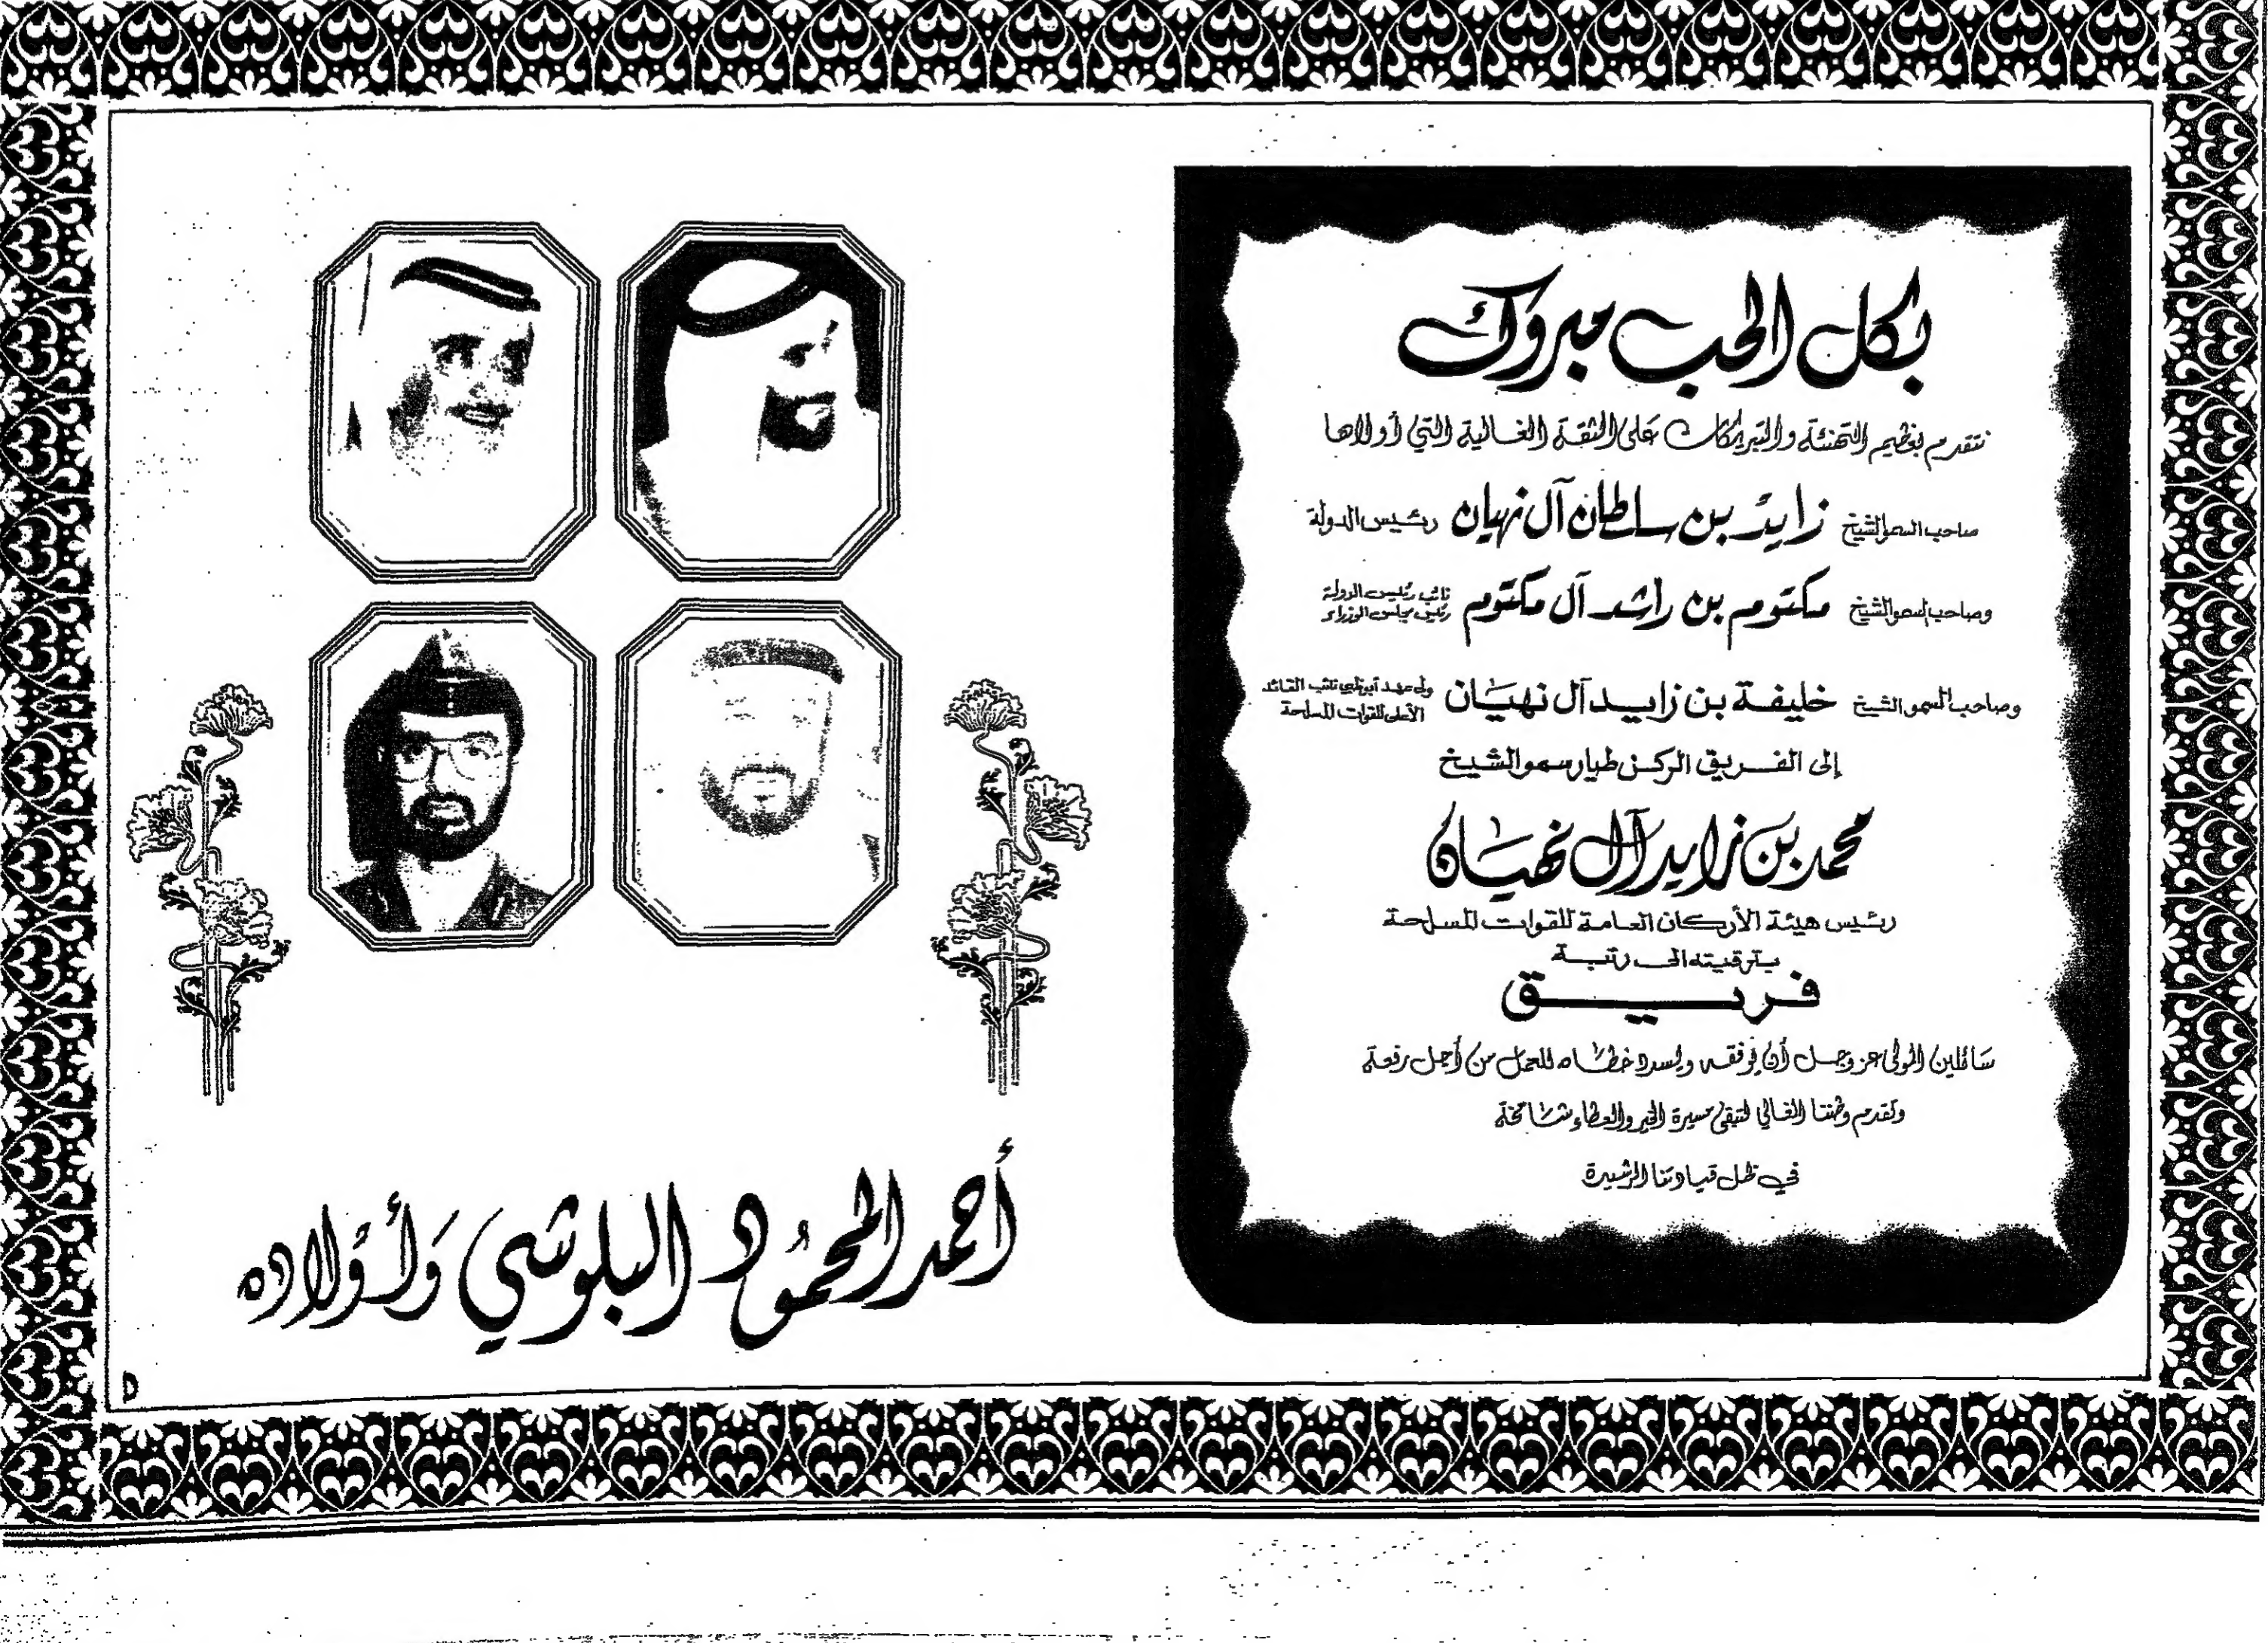 بكل الحب مبروك
نتقدم بعظيم التهنئة والتبريكات على الثقة الغالية التي أولاها
صاحب السمو الشيخ زايد بن سلطان آل نهيان رئيس الدولة
وصاحب السمو الشيخ مكتوم بن راشد آل مكتوم نائب رئيس الدولة رئيس مجلس الوزراء
وصاحب السمو الشيخ خليفة بن زايد آل نهيان ولي عهد أبوظبي نائب القائد الأعلى للقوات المسلحة
إلى الفريق الركن طيار سمو الشيخ
محمد بن زايد آل نهيان
رئيس هيئة الأركان العامة للقوات المسلحة
بترقيته الى رتبة
فريق
سائلين المولى عز وجل أن يوفقه ويسدد خطاه للعمل من أجل رفعة
وتقدم وطننا الغالي لتبقى مسيرة الخير والعطاء شامخة
في ظل قيادتنا الرشيدة
أحمد المحمود البلوشي وأولاده
D